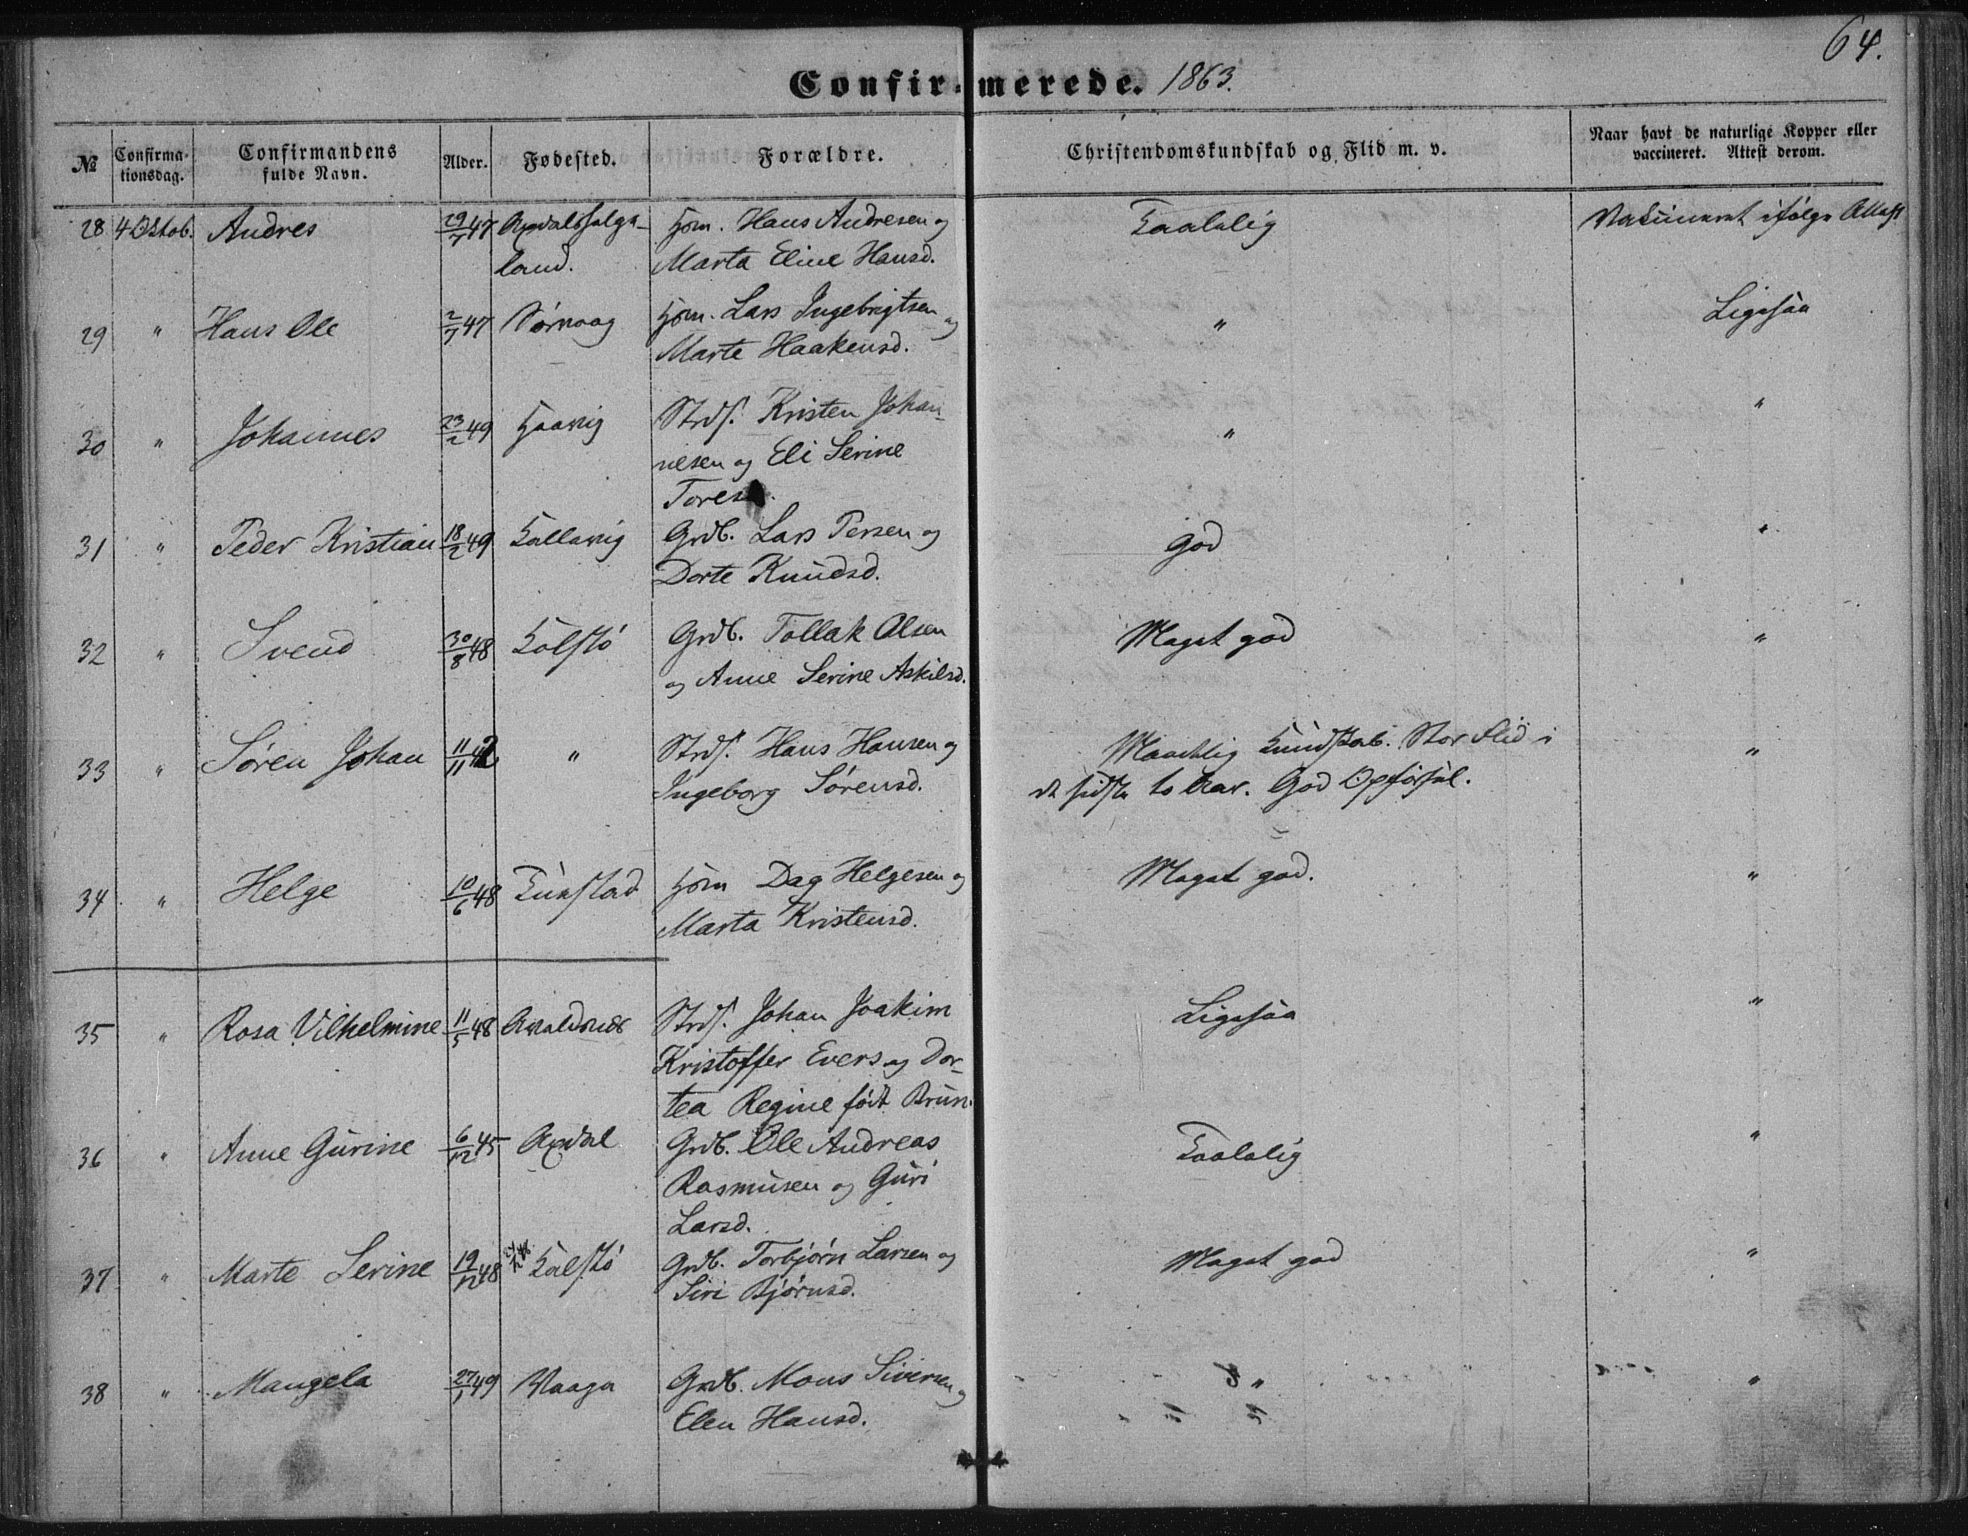 64.
Confirmerede. 1863.
№ Confirma-tionsdag. Confirmandens fulde Navn. Alder. Fødested. Forældre. Christendomskundskab og Flid m. v. Naar havt de naturlige Kopper eller vaccineret. Attest derom.
28 4 Oktob. Andres 29/7 47 Hjm. Hans Andresen og Taalelig Vakcineret ifølge Attest
land. Marta Eline Hansd.
29 " Hans Ole 2/7 47 Sørvaag Hjm. Lars Ingebrigtsen og " Ligesaa
Marte Haakensd.
30 " Johannes 23/2 49 Haavig Strds. Kristen Johan- " "
nesen og Eli Serine
Tores
31 " Peder Kristian 18/2 49 Kallavig Grdb. Lars Persen og God "
Dorte Knudsd.
32 " Svend 30/8 48 Kolstø Grdb. Tollak Olsen Meget god "
og Anne Serine Askilsd.
33 " Søren Johan 11/11 42 " Strds. Hans Hansen og Maadelig Kundskab. Stor Flid i "
Ingeborg Sørensd. de sidste to Aar. God Opførsel.
34 " Helge 10/6 48 Hjm Dag Helgesen og Meget god. "
Marta Kristensd.
35 " Rosa Vilhelmine 11/5 48 Avaldsnes Strds. Johan Joakim Ligesaa "
Kristoffer Evers og Dor-
tea Regine født Brun.
36 " Anne Gurine 6/12 45 Grdb. Ole Andreas Taalelig "
Rasmusen og Guri
Larsd.
37 " Marte Serine 19/12 48 Kolstø Grdb. Torbjørn Larsen og Meget god "
Siri Bjørnsd.
38 " Mangela 27/1 49 Vaaga Grdb. Mons Siversen og " "
Elen Hansd.